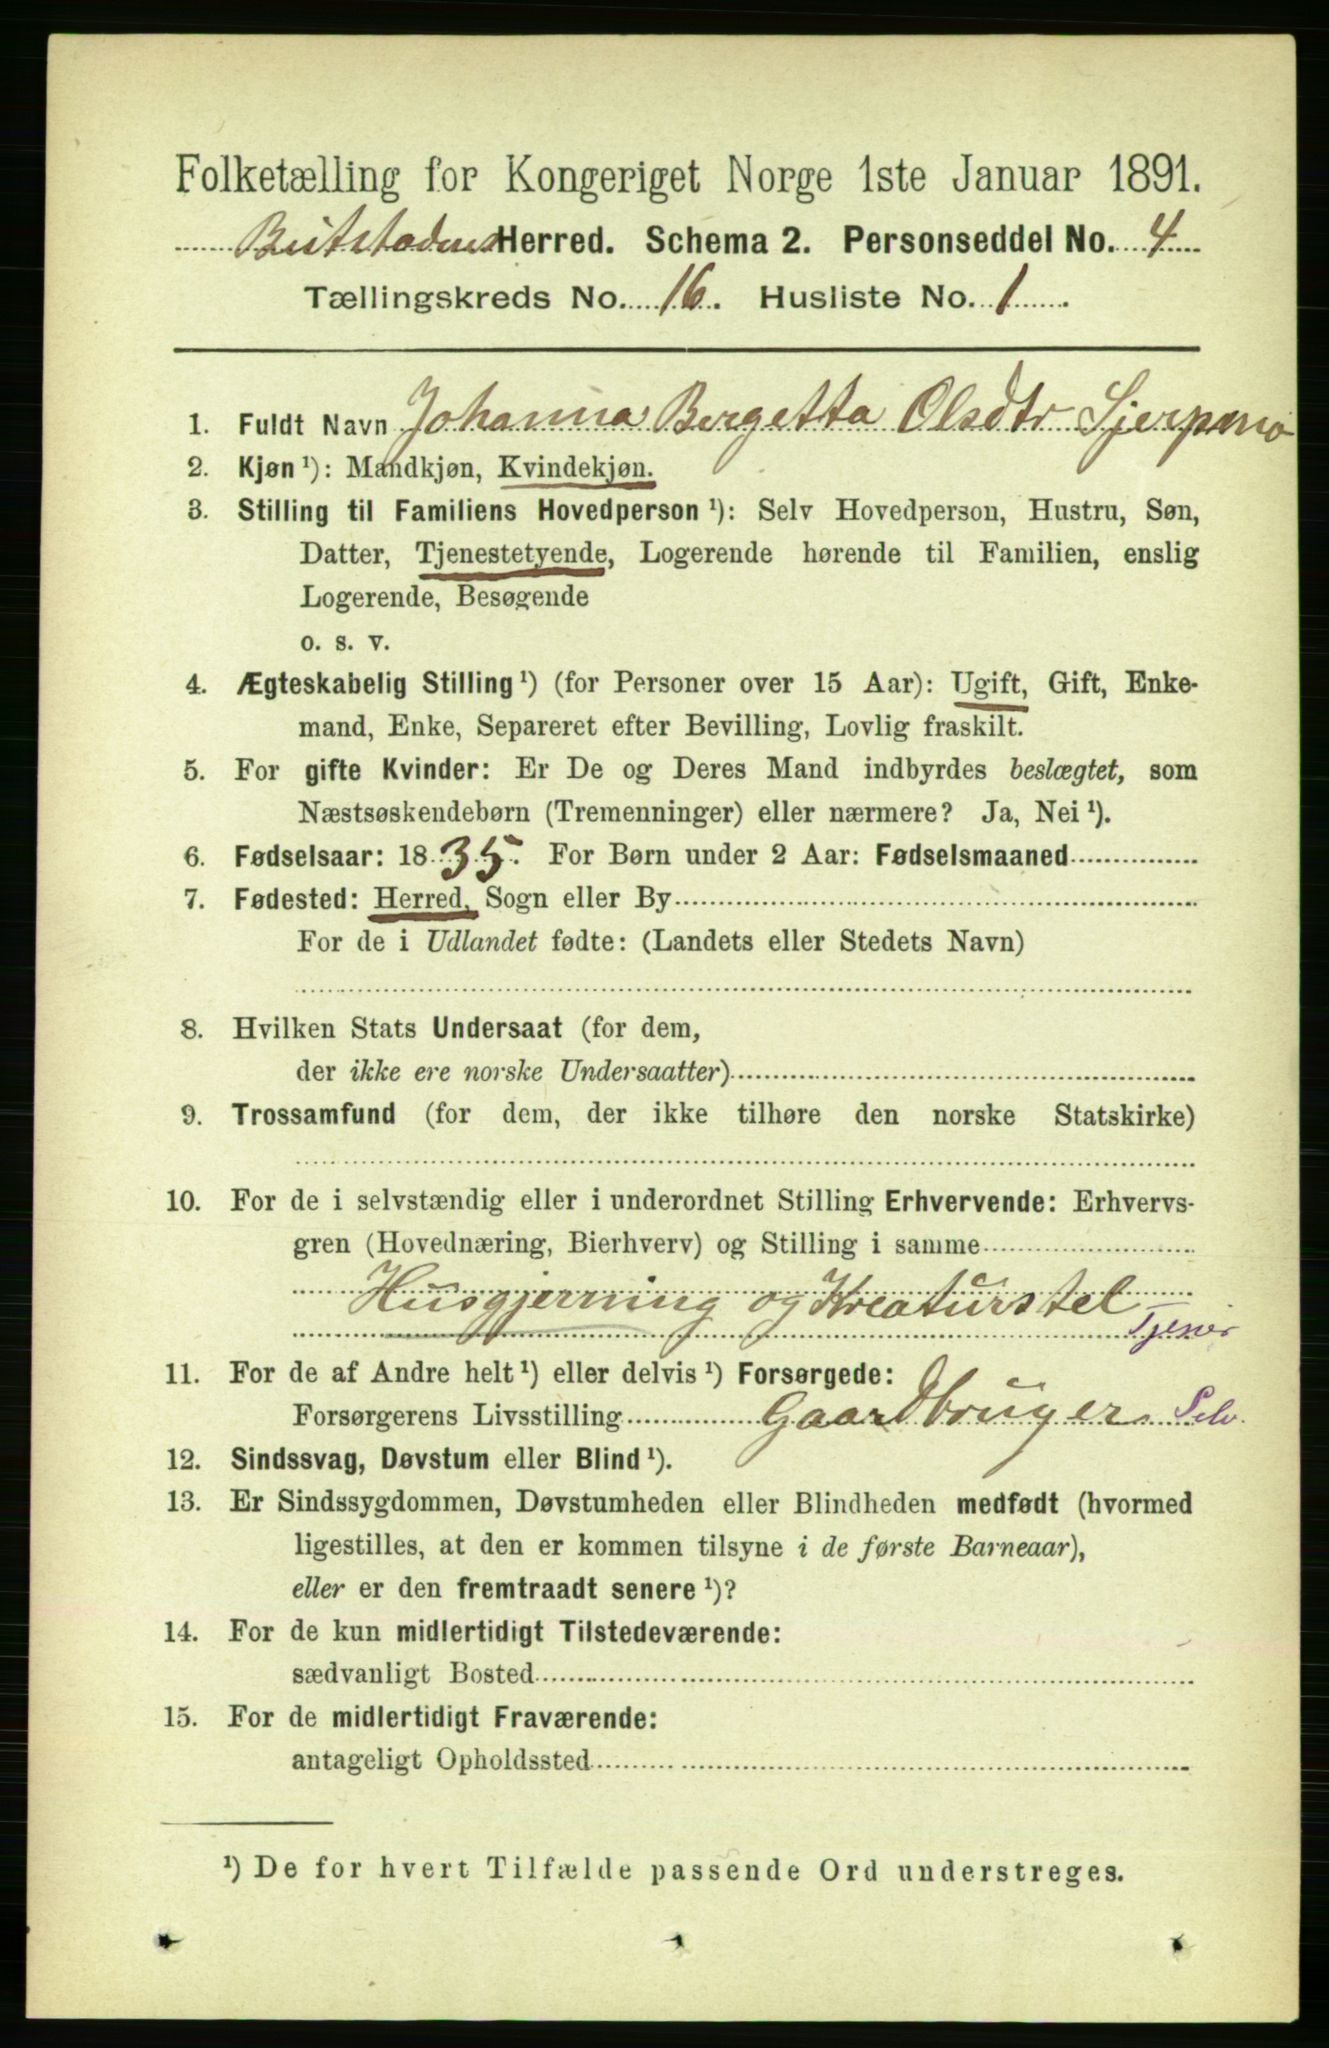 Folketælling for Kongeriget Norge 1ste Januar 1891.
Beitstadens Herred. Schema 2. Personseddel No. 4
Tællingskreds No. 16. Husliste No. 1.
1. Fuldt Navn Johanna Bergetta Olsdtr
2. Kjøn ¹): Mandkjøn, Kvindekjøn.
3. Stilling til Familiens Hovedperson ¹): Selv Hovedperson, Hustru, Søn,
Datter, Tjenestetyende, Logerende hørende til Familien, enslig
Logerende, Besøgende
o. s. v.
4. Ægteskabelig Stilling ¹) (for Personer over 15 Aar): Ugift, Gift, Enke-
mand, Enke, Separeret efter Bevilling, Lovlig fraskilt.
5. For gifte Kvinder: Er De og Deres Mand indbyrdes beslægtet, som
Næstsøskendebørn (Tremenninger) eller nærmere? Ja, Nei ¹).
6. Fødselsaar: 1835. For Børn under 2 Aar: Fødselsmaaned
7. Fødested: Herred, Sogn eller By
For de i Udlandet fødte: (Landets eller Stedets Navn)
8. Hvilken Stats Undersaat (for dem,
der ikke ere norske Undersaatter)
9. Trossamfund (for dem, der ikke tilhøre den norske Statskirke)
10. For de i selvstændig eller i underordnet Stilling Erhvervende: Erhvervs-
gren (Hovednæring, Bierhverv) og Stilling i samme
Husgjerning og Kreaturstel -
Tjener
11. For de af Andre helt ¹) eller delvis ¹) Forsørgede:
Forsørgerens Livsstilling Gaardbruger Selv.
12. Sindssvag, Døvstum eller Blind ¹).
13. Er Sindssygdommen, Døvstumheden eller Blindheden medfødt (hvormed
ligestilles, at den er kommen tilsyne i de første Barneaar),
eller er den fremtraadt senere ¹)?
14. For de kun midlertidigt Tilstedeværende:
sædvanligt Bosted
15. For de midlertidigt Fraværende:
antageligt Opholdssted
¹) De for hvert Tilfælde passende Ord understreges.